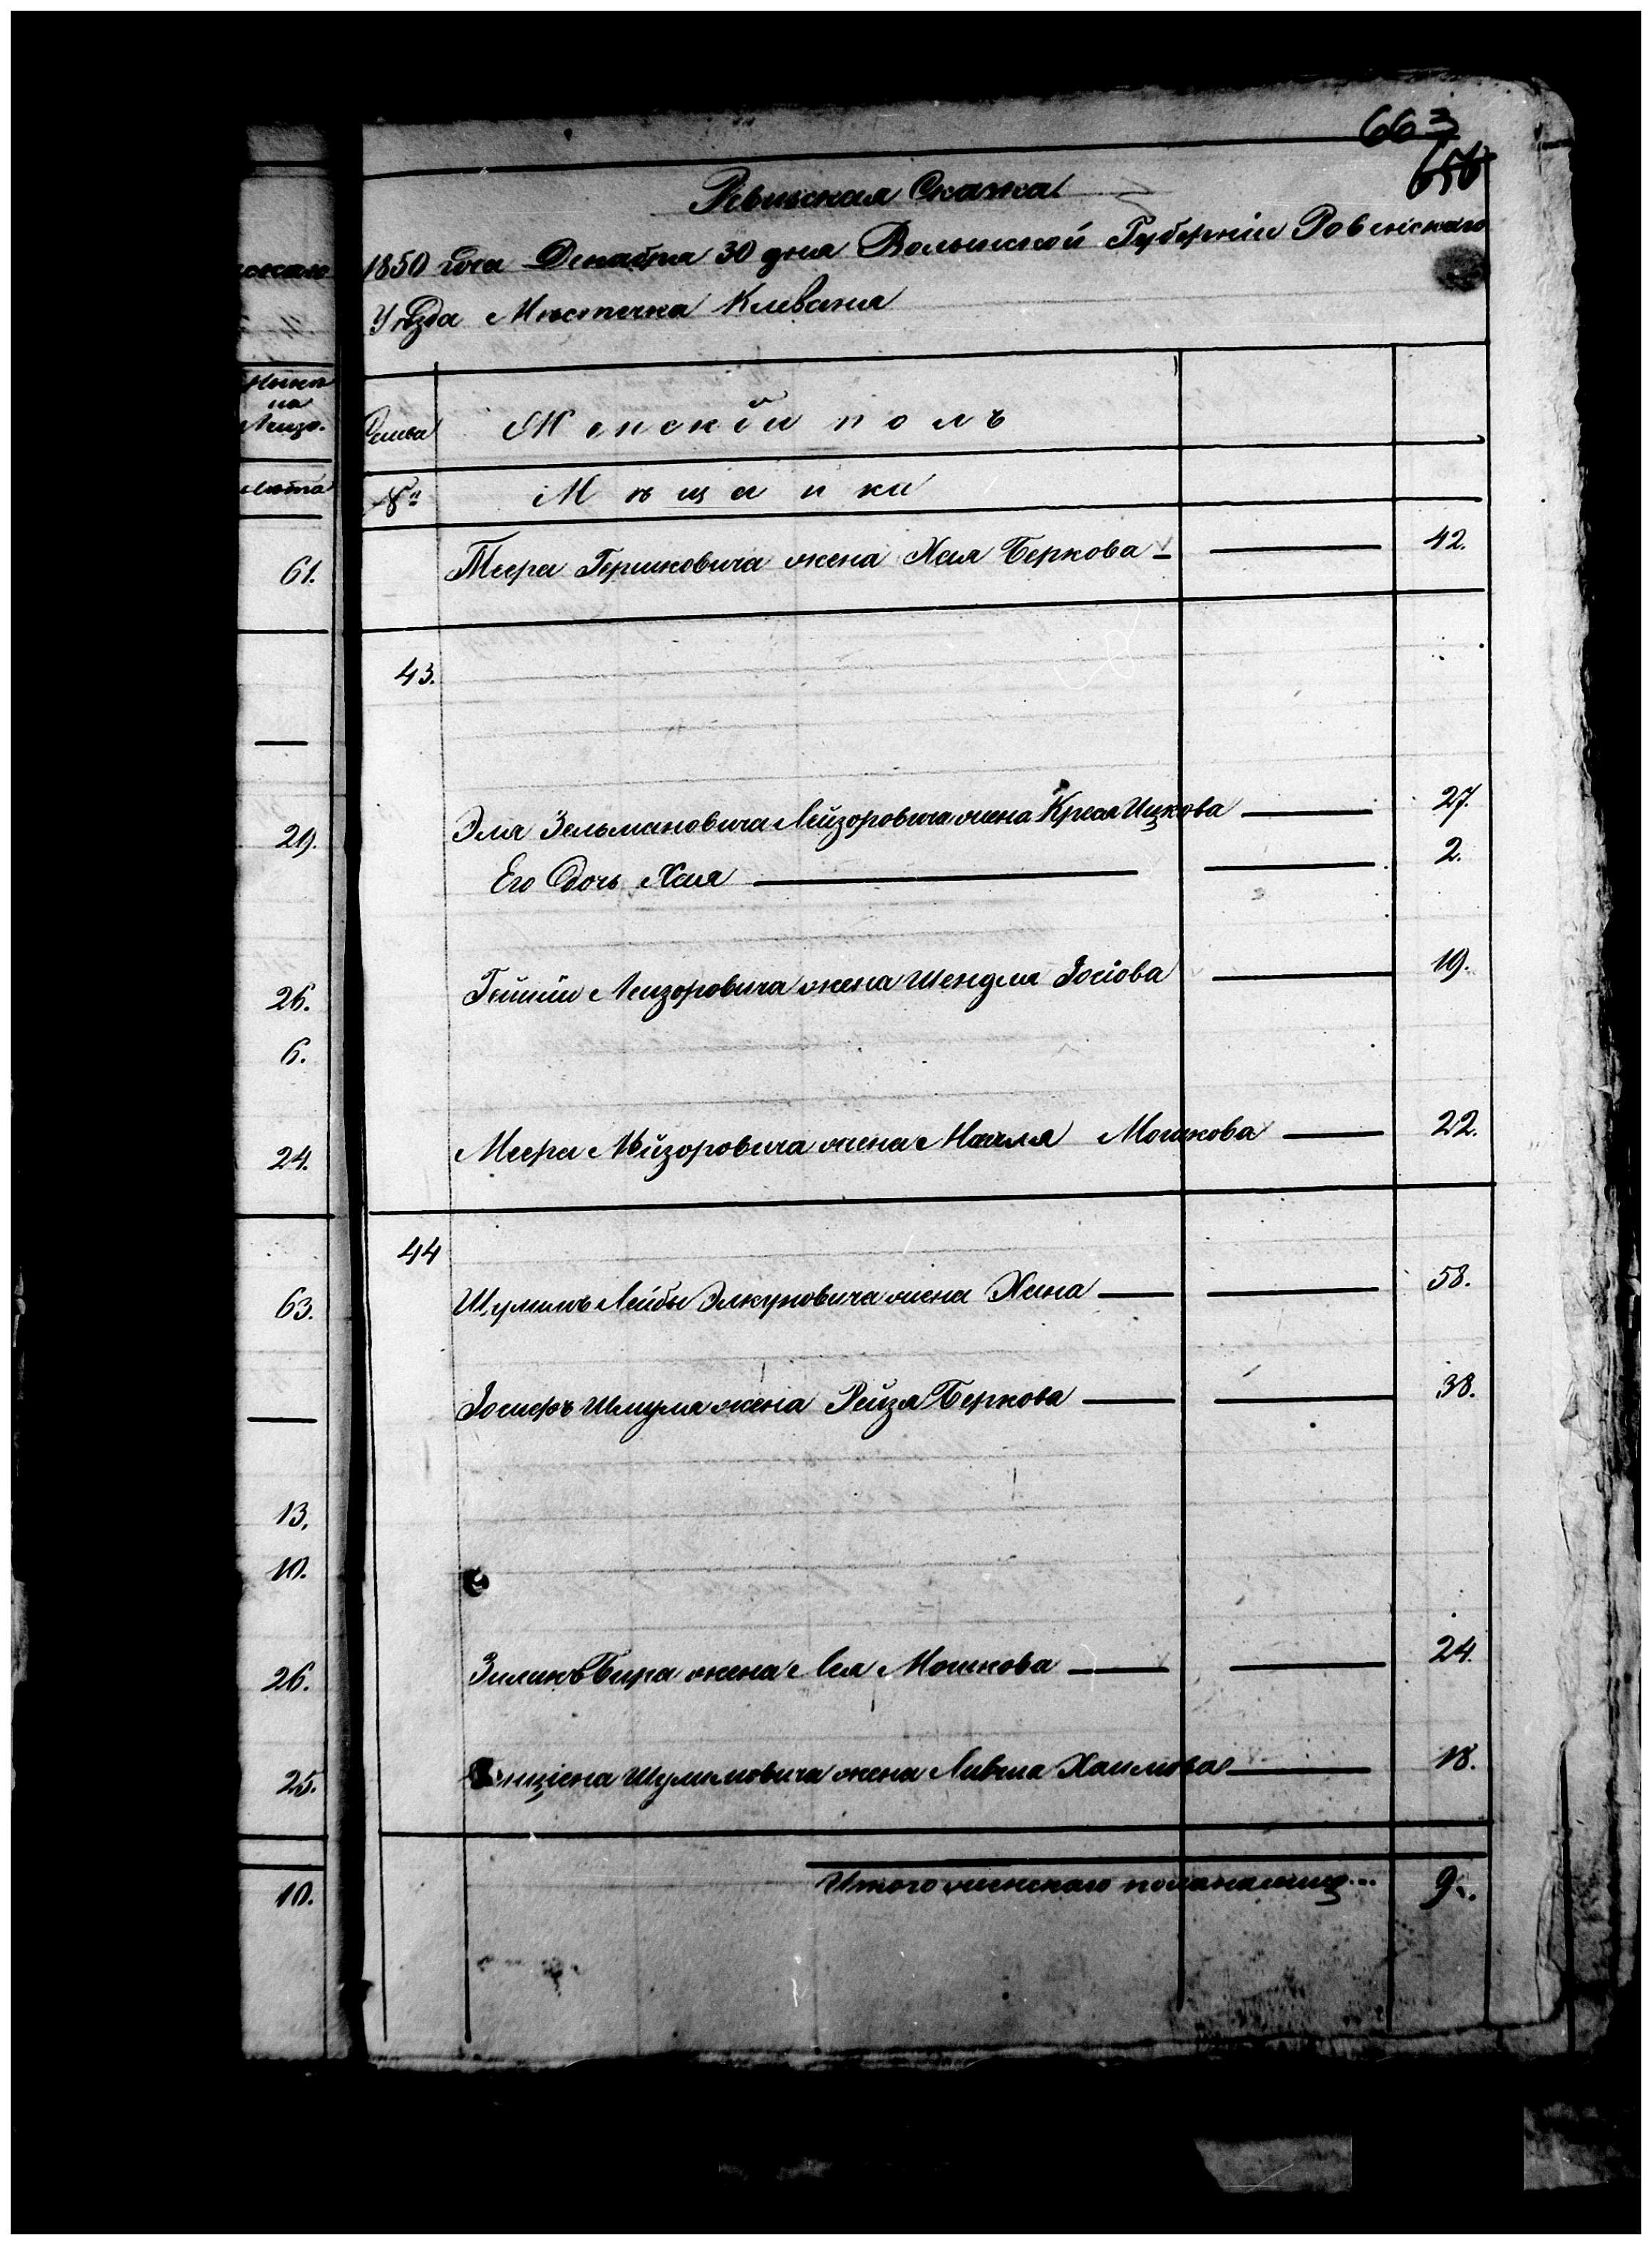 663
656
Ревизская Сказка
1850 года Декабря 30 дня Волынской Губерніи Ровенскаго
Уѣзда Мѣстечка Клеваня
Нынѣ
на
Лицо.
Семьи
Женскій полъ
Лѣта
№
Мѣщанки
61.
Меера Гершковича жена Хая Беркова
42.
43.
29.
Эля Зельмановича Лейзоровича жена Крейса Ицкова
27.
Его дочь Хая
2.
26.
Лейзоровича жена Шендля Іосіова
19.
6.
24.
Меера Лейзоровича жена Махля Мошкова
22.
44
63.
Шулимъ Лейбы Элкуновича жена Хана
58.
Іосифъ Шмуля жена Рейзя Беркова
38.
13.
10.
26.
Зиликъ Бера жена Лея Мошкова
24.
25.
Шулимовича жена Ливша Хаимова
18.
Итого женскаго пола налицо...
9.
10.